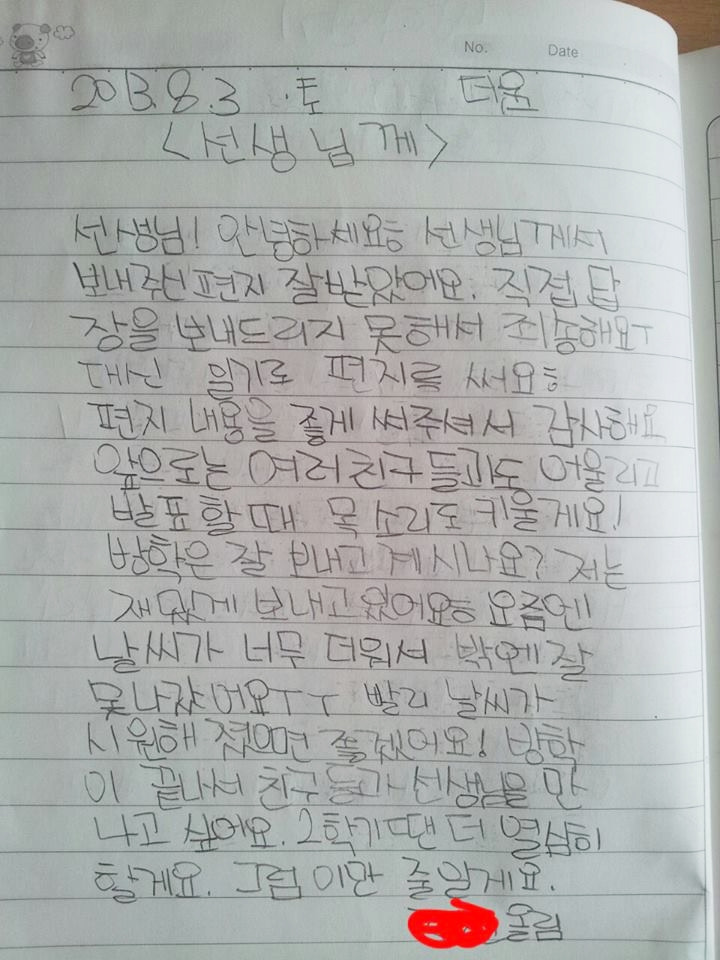 No. Date
2013.8.3 .토 더움
<선생님께>
선생님! 안녕하세요ㅎ 선생님께서
보내주신 편지 잘 받았어요. 직접 답
장을 보내드리지 못해서 죄송해요ㅜ
대신 일기로 편지를 써요ㅎ
편지 내용을 좋게 써주셔서 감사해요
앞으로는 여러 친구들과도 어울리고
발표할 때 목소리도 키울게요!
방학은 잘 보내고 계시나요? 저는
재밌게 보내고 있어요ㅎ 요즘엔
날씨가 너무 더워서 밖엔 잘
못나갔어요ㅜㅜ 빨리 날씨가
시원해 졌으면 좋겠어요! 방학
이 끝나서 친구들과 선생님을 만
나고 싶어요. 2학기 땐 더 열심히
할게요. 그럼 이만 줄일게요.
올림